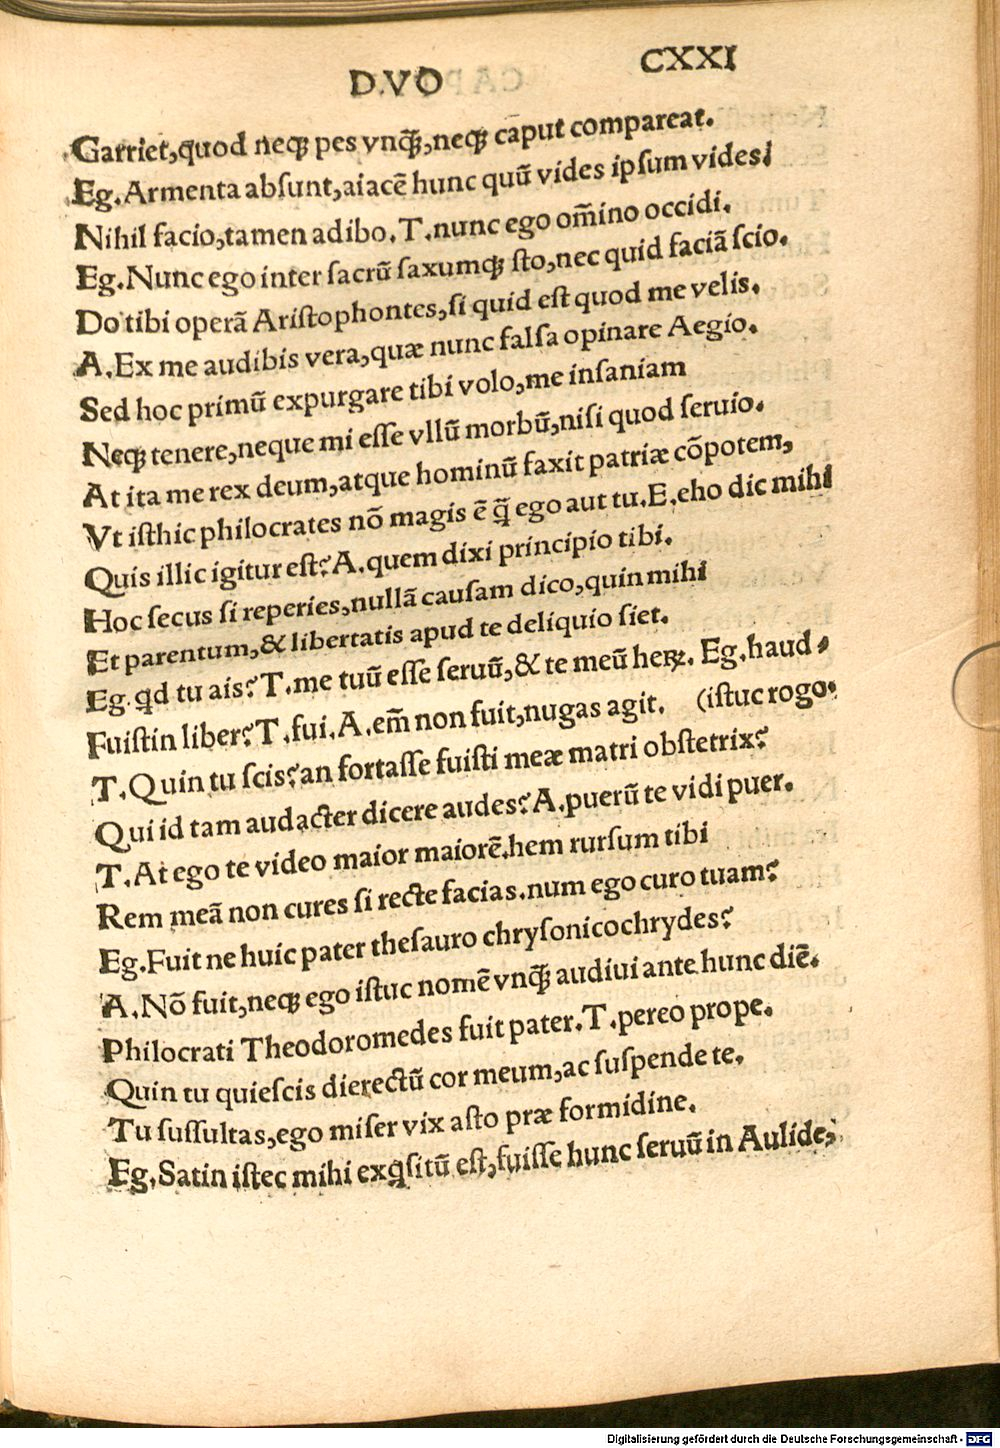 D.VO CXXI
Garriet,quod neqꝫ pes vnqᷓꝫ,neqꝫ caput compareat.
Eg.Armenta abſunt,aiacē hunc quū vides ipſum vides:
Nihil facio,tamen adibo.T.nunc ego om̄ino occidi.
Eg.Nunc ego inter ſacrū ſaxumqꝫ ſto,nec quid faciā ſcio.
Do tibi operā Ariſtophontes,ſi quid eſt quod me velis.
A.Ex me audibis vera,quæ nunc falſa opinare Aegio.
Sed hoc primū expurgare tibi volo,me inſaniam
Neqꝫ tenere,neque mi eſſe vllū morbū,niſi quod ſeruio.
At ita me rex deum,atque hominū faxit patriæ cōpotem,
Vt iſthic philocrates nō magis ē qᷓ ego aut tu.E.eho dic mihi
Quis illic igitur eſt?A.quem dixi principio tibi.
Hoc ſecus ſi reperies,nullā cauſam dico,quin mihi
Et parentum,& libertatis apud te deliquio ſiet.
Eg.qd tu ais?T.me tuū eſſe ſeruū,& te meū heꝝ. Eg.haud
Fuiſtin liber?T.fui.A.em̄ non fuit,nugas agit. (iſtuc rogo.
T.Quin tu ſcis?an fortaſſe fuiſti meæ matri obſtetrix?
Qui id tam audacter dicere audes?A.puerū te vidi puer.
T.At ego te video maior maiorē.hem rurſum tibi
Rem meā non cures ſi recte facias.num ego curo tuam?
Eg.Fuit ne huic pater theſauro chryſonicochrydes?
A.Nō fuit,neqꝫ ego iſtuc nomē vnqᷓꝫ audiui ante hunc diē.
Philocrati Theodoromedes fuit pater.T.pereo prope.
Quin tu quieſcis dierectū cor meum,ac ſuſpende te.
Tu ſuſſultas,ego miſer vix aſto præ formidine.
Eg.Satin iſtec mihi exqſitū eſt,fuiſſe hunc ſeruū in Aulide,
Digitalisierung gefördert durch die Deutsche Forschungsgemeinschaft - DFG